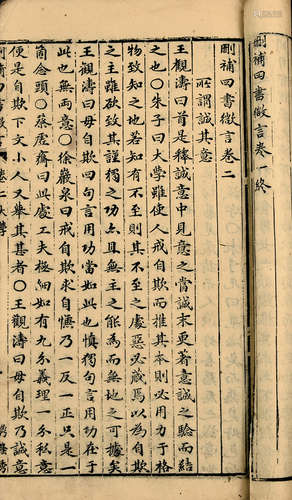 刪補四書微言卷一終
刪補四書微言卷二
所謂誠其意
王觀濤曰首是釋誠意中見意之當誠末更著意誠之驗而結
之也○朱子曰大學雖使人戒自欺而推其本則必用力于格
物致知之地若知有不至則其不至之處惡必藏焉以為自欺
之主雖欲致其謹獨之功亦且無主之能為而無地之可據矣
王觀濤曰毋自欺一句言用功當如此也慎獨句言用功在于
此也無兩意○徐巖泉曰戒自欺求自慊乃一反一正只是一
箇念頭○蔡虛齋曰此處工夫極細如有九分義理一分私意
便是自欺下文小人又舉其甚者○王觀濤曰毋自欺乃誠意
卷二大學